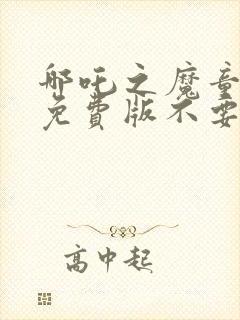 哪吒之魔童
免費版不要
高中起